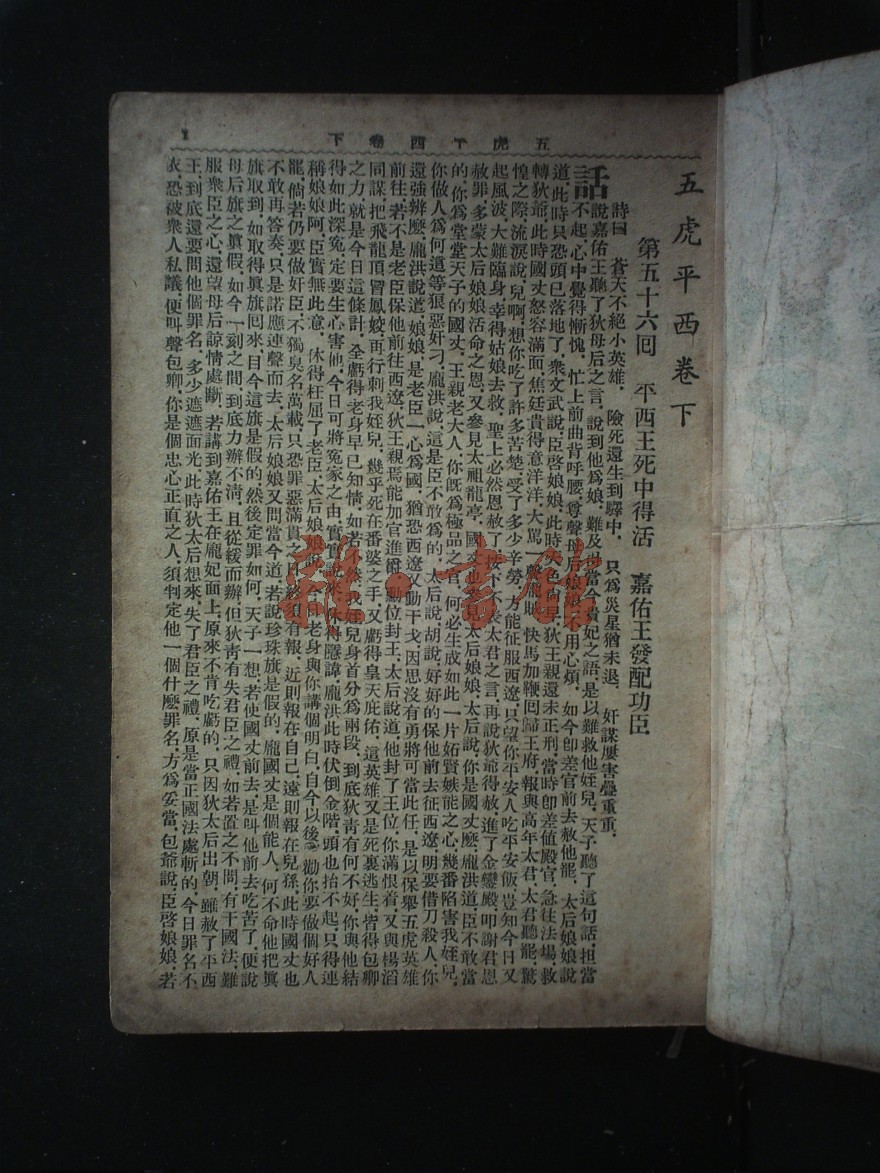 五虎平西卷下
1
五虎平西卷下
第五十六囘　平西王死中得活　嘉佑王發配功臣
詩曰　蒼天不絕小英雄．險死還生到驛中．只爲災星猶未退．奸謀屢害疊重重．
話說嘉佑王聽了狄母后之言．說到他爲娘．難及當今貴妃之語．是以難救他姪兒．天子聽了這句話．担當
不起．心中覺得慚愧．忙上前曲背呼腰．尊聲母后娘娘不用心煩．如今卽差官前去赦他罷．太后娘娘說
道．此時只恐頭已落地了．衆文武說．臣啓娘娘．此時天色尚早．狄王親還未正刑．當時卽差値殿官．急往法場．救
轉狄爺．此時國丈怒容滿面．焦廷貴得意洋洋．大罵一聲．快馬加鞭囘歸王府．報與高年太君．太君聽罷．驚
惶之際．流淚說．兒啊．想你吃了許多苦楚．受了多少辛勞．方能征服西遼．只望你平安人吃平安飯．豈知今日又
起風波．大難臨身．幸得姑娘去救．聖上必然恩赦了．按下不表太君之言．再說狄爺得赦．進了金鑾殿．叩謝君恩
赦罪．多蒙太后娘娘活命之恩．又參見太祖龍亭．國丈也參見太后娘娘．太后說．你是國丈麽．龐洪道．臣不敢當
的．你爲堂堂天子的國丈．王親老大人．你旣爲極品之官．何必生成如此一片妬賢嫉能之心．幾番陷害我姪兒．
你做人爲何道等狠惡奸刁．龐洪說．這是臣不敢爲的．太后說．胡說．好好的保他前去征西遼．明要借刀殺人．你
還強辨麽．龐洪說道．娘娘．是老臣一心爲國．猶恐西遼又動干戈．因思沒有勇將可當此任．是以保舉五虎英雄
前往．若不是老臣保他前往西遼．狄王親焉能加官進爵．勳位封王．太后說道．他封了王位．你滿恨着．又與楊滔
同謀．把飛龍頂冒鳳姣．再行刺我姪兒．幾乎死在番婆之手．又虧得皇天庇佑．這英雄又是死裏逃生．皆得包卿
之力．就是今日這條計．全虧得老身早已知情．如若不然．我姪兒身首分爲兩段．到底狄靑有何不好．你與他結
得如此深冤．定要生心害他．今日可將冤家之由．實實說來．休得隱諱．龐洪此時伏倒金階．頭也抬不起．只得連
稱娘娘阿．臣實無此意．休得枉屈了老臣．太后娘娘說．今日老身與你講個明白．自今以後．勸你要做個好人
罷．倘若仍要做奸臣．不獨臭名萬載．只恐罪惡滿貫之日．終須有報．近則報在自己．遠則報在兒孫．此時國丈也
不敢再答奏．只是諾應連聲而去．太后娘娘又問當今道．若說珍珠旗是假的．龐國丈是個能人．何不命他把眞
旗取到．如取得眞旗囘來．目今這旗是假的．然後定罪如何．天子一想．若使國丈前去．是叫他前去吃苦了．便說
母后．旗之眞假．如今一刻之間．到底力辦不淸．且從緩而辦．但狄靑有失君臣之禮．如若置之不問．有干國法．難
服衆臣之心．還望母后諒情處斷．若講到嘉佑王在龐妃面上．原來不肯吃虧的．只因狄太后出朝．雖赦了平西
王．到底還要問他個罪名．多少遮遮面光．此時狄太后想來．失了君臣之禮．原是當正國法處斬的．今日罪名不
衣．恐被衆人私議．便叫聲包卿．你是個忠心正直之人．須判定他一個什麽罪名．方爲妥當．包爺說．臣啓娘娘．若
雜·書館